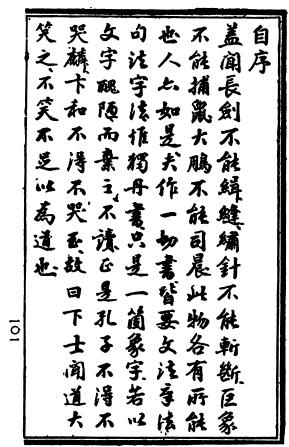 自序
蓋聞長劍不能緝縫繡針不能斬斷巨象
不能捕鼠大鵬不能司晨此物各有所能
也人亦如是夫作一切書皆要文法字法
句法字法惟獨丹書只是一箇象字若以
文字醜陋而棄之不讀正是孔子不得不
哭麟卞和不得不哭玉故曰下士聞道大
笑之不笑不足以為道也
101